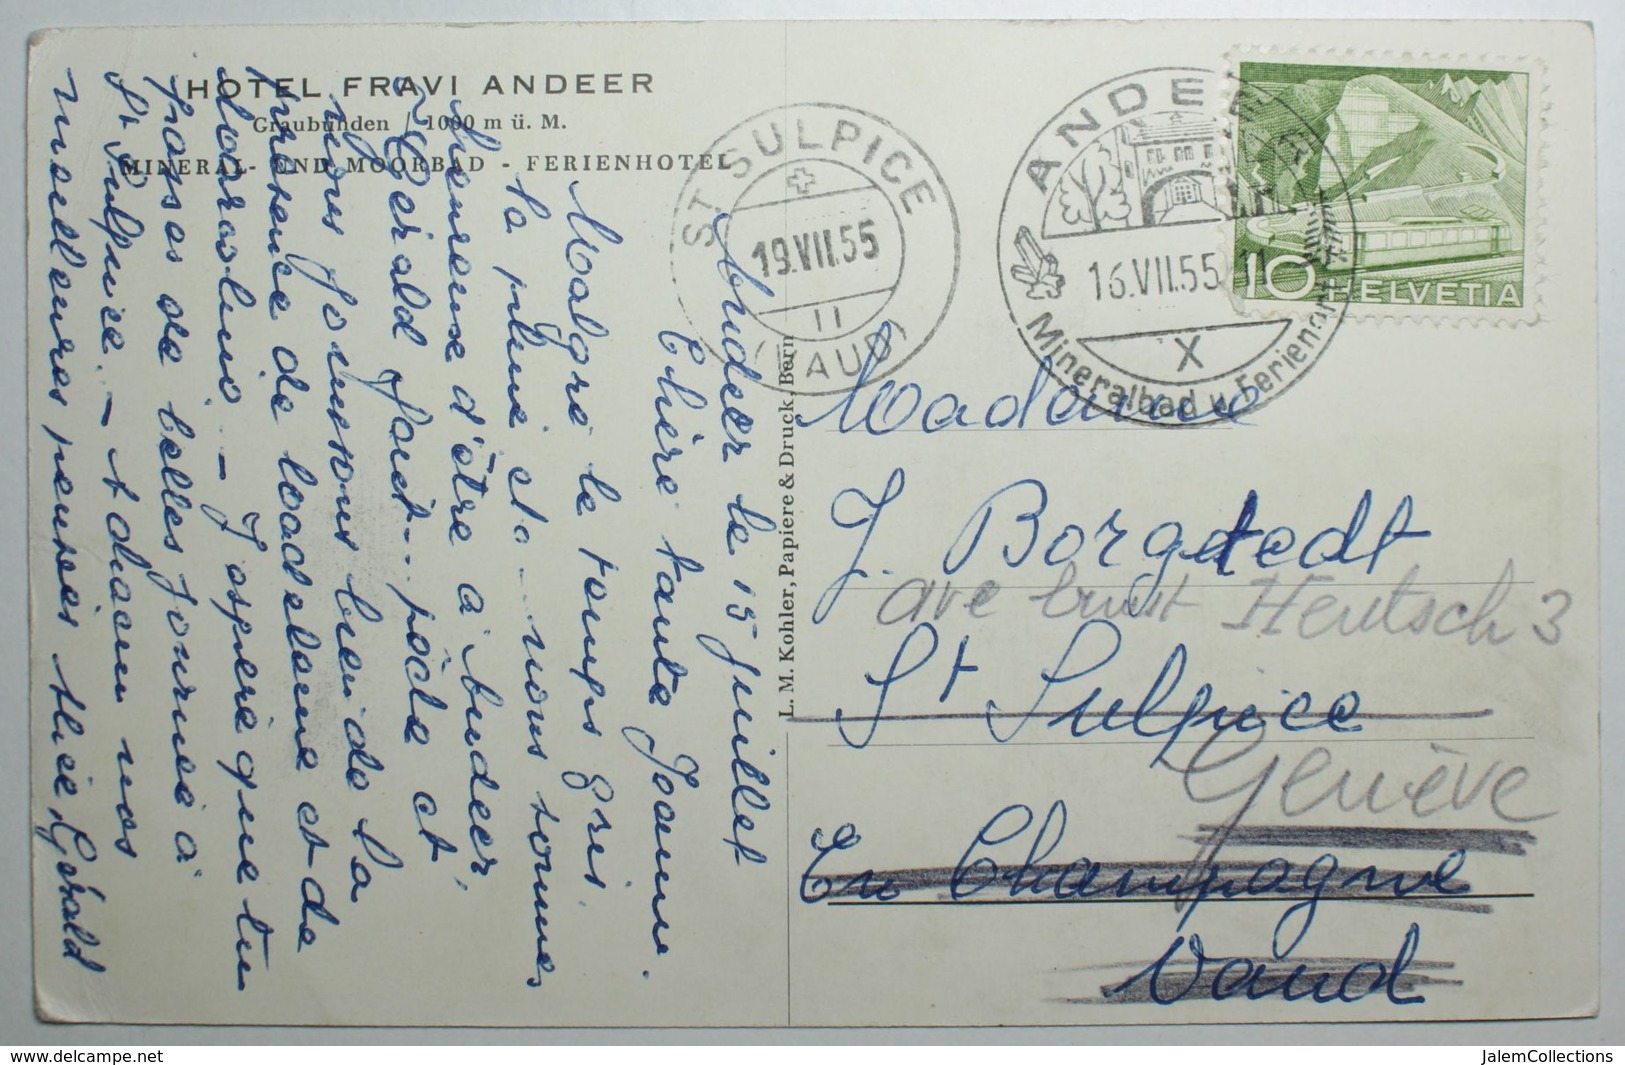 HOTEL FRAVI ANDEER
Graubünden / 1000 m ü. M.
MINERAL- UND MOORBAD - FERIENHOTEL
Andeer le 15 juillet
Chère tante Jeanne.
Malgré le temps gris,
la pluie etc... nous sommes
heureuse d'être à Andeer,
Gérald fait... pèche et
nous jouissons bien de la
présence de Madeleine et de
J'espère que tu
passes de belles journée à
St Sulpice. - t chacun nos
meilleures pensées thée, Gérald
L. M. Kohler, Papiere & Druck, Bern
ST. SULPICE
19.VII.55
11
(VAUD)
ANDEER
16.VII.55 11
X
Mineralbad u. Ferienort
10 HELVETIA
Madame
J. Borgstedt
ave Ernst Hentsch 3
St Sulpice
Genève
En Champagne
Vaud
www.delcampe.net
JalemCollections